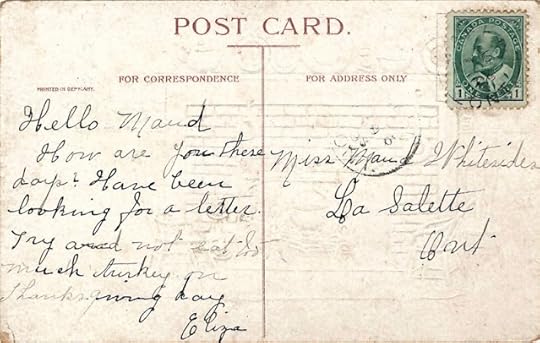 POST CARD.
PRINTED IN GERMANY.
FOR CORRESPONDENCE
Hello Maud
How are you these
days? Have been
looking for a letter.
Try and not eat
much turkey on
Thanksgiving day
Eliza
FOR ADDRESS ONLY
CANADA POSTAGE
1 1
Miss Maud Whitesides
La Salette
Ont.